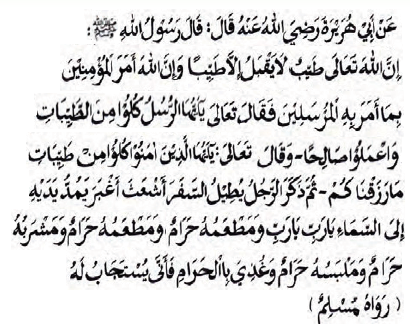 عَنْ اَبِيْ هُرَيْرَةَ رَضِيَ اللهُ عَنْهُ قَالَ: قَالَ رَسُوْلُ اللهِ ﷺ :
اِنَّ اللهَ تَعَالَى طَيِّبٌ لَا يَقْبَلُ اِلَّا طَيِّبًا وَاِنَّ اللهَ اَمَرَ الْمُؤْمِنِيْنَ
بِمَا اَمَرَ بِهِ الْمُرْسَلِيْنَ فَقَالَ تَعَالَى يٰاَيُّهَا الرُّسُلُ كُلُوْا مِنَ الطَّيِّبَاتِ
وَاعْمَلُوْا صَالِحًا - وَقَالَ تَعَالَى: يٰاَيُّهَا الَّذِيْنَ اٰمَنُوْا كُلُوْا مِنْ طَيِّبَاتِ
مَا رَزَقْنَا كُمْ - ثُمَّ ذَكَرَ الرَّجُلَ يُطِيْلُ السَّفَرَ اَشْعَثَ اَغْبَرَ يَمُدُّ يَدَيْهِ
اِلَى السَّمَاءِ يَارَبِّ يَارَبِّ وَمَطْعَمُهُ حَرَامٌ، وَمَطْعَمُهُ حَرَامٌ وَمَشْرَبُهُ
حَرَامٌ وَمَلْبَسُهُ حَرَامٌ وَغُذِيَ بِالْحَرَامِ فَاَنّٰى يُسْتَجَابُ لَهُ
( رَوَاهُ مُسْلِمٌ )